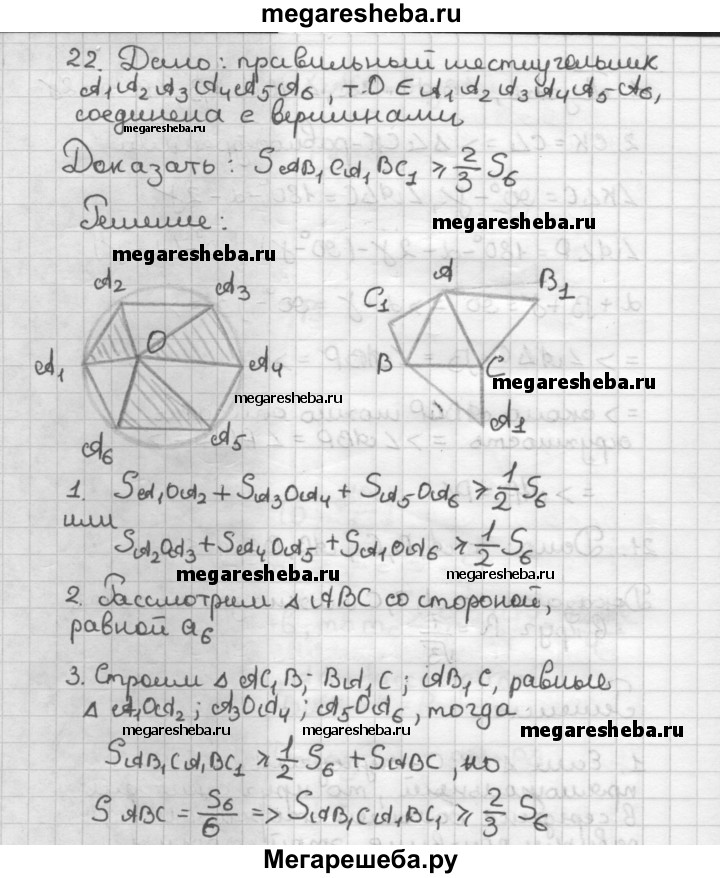 megaresheba.ru
22. Дано: правильный шестиугольник
A₁A₂A₃A₄A₅A₆, т.O ∈ A₁A₂A₃A₄A₅A₆,
соединена с вершинами
megaresheba.ru
Доказать: S AB₁CA₁BC₁ ⩾ 2/3 S₆
Решение:
megaresheba.ru
megaresheba.ru
A₂ A₃ A B₁
C₁
A₁ O A₄ B C
megaresheba.ru
megaresheba.ru
A₁
A₆ A₅
1. S A₁OA₂ + S A₃OA₄ + S A₅OA₆ ⩾ 1/2 S₆
или
S A₂OA₃ + S A₄OA₅ + S A₁OA₆ ⩾ 1/2 S₆
megaresheba.ru megaresheba.ru
2. Рассмотрим △ ABC со стороной,
равной a₆
3. Строим △ AC₁B; BA₁C; AB₁C, равные
△ A₁OA₂; A₃OA₄; A₅OA₆, тогда
megaresheba.ru megaresheba.ru megaresheba.ru
S AB₁CA₁BC₁ ⩾ 1/2 S₆ + S ABC, но
S ABC = S₆/6 => S AB₁CA₁BC₁ ⩾ 2/3 S₆
Мегарешеба.ру